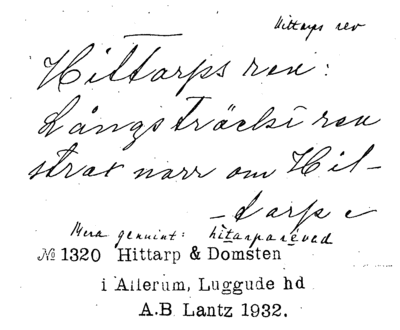 Hittarps rev
Hittarps rev:
Långsträckt rev
strax norr om Hit-
-tarp
Mera genuint: hitarparéved
№ 1320 Hittarp & Domsten
i Allerum, Luggude hd
A.B. Lantz 1932.